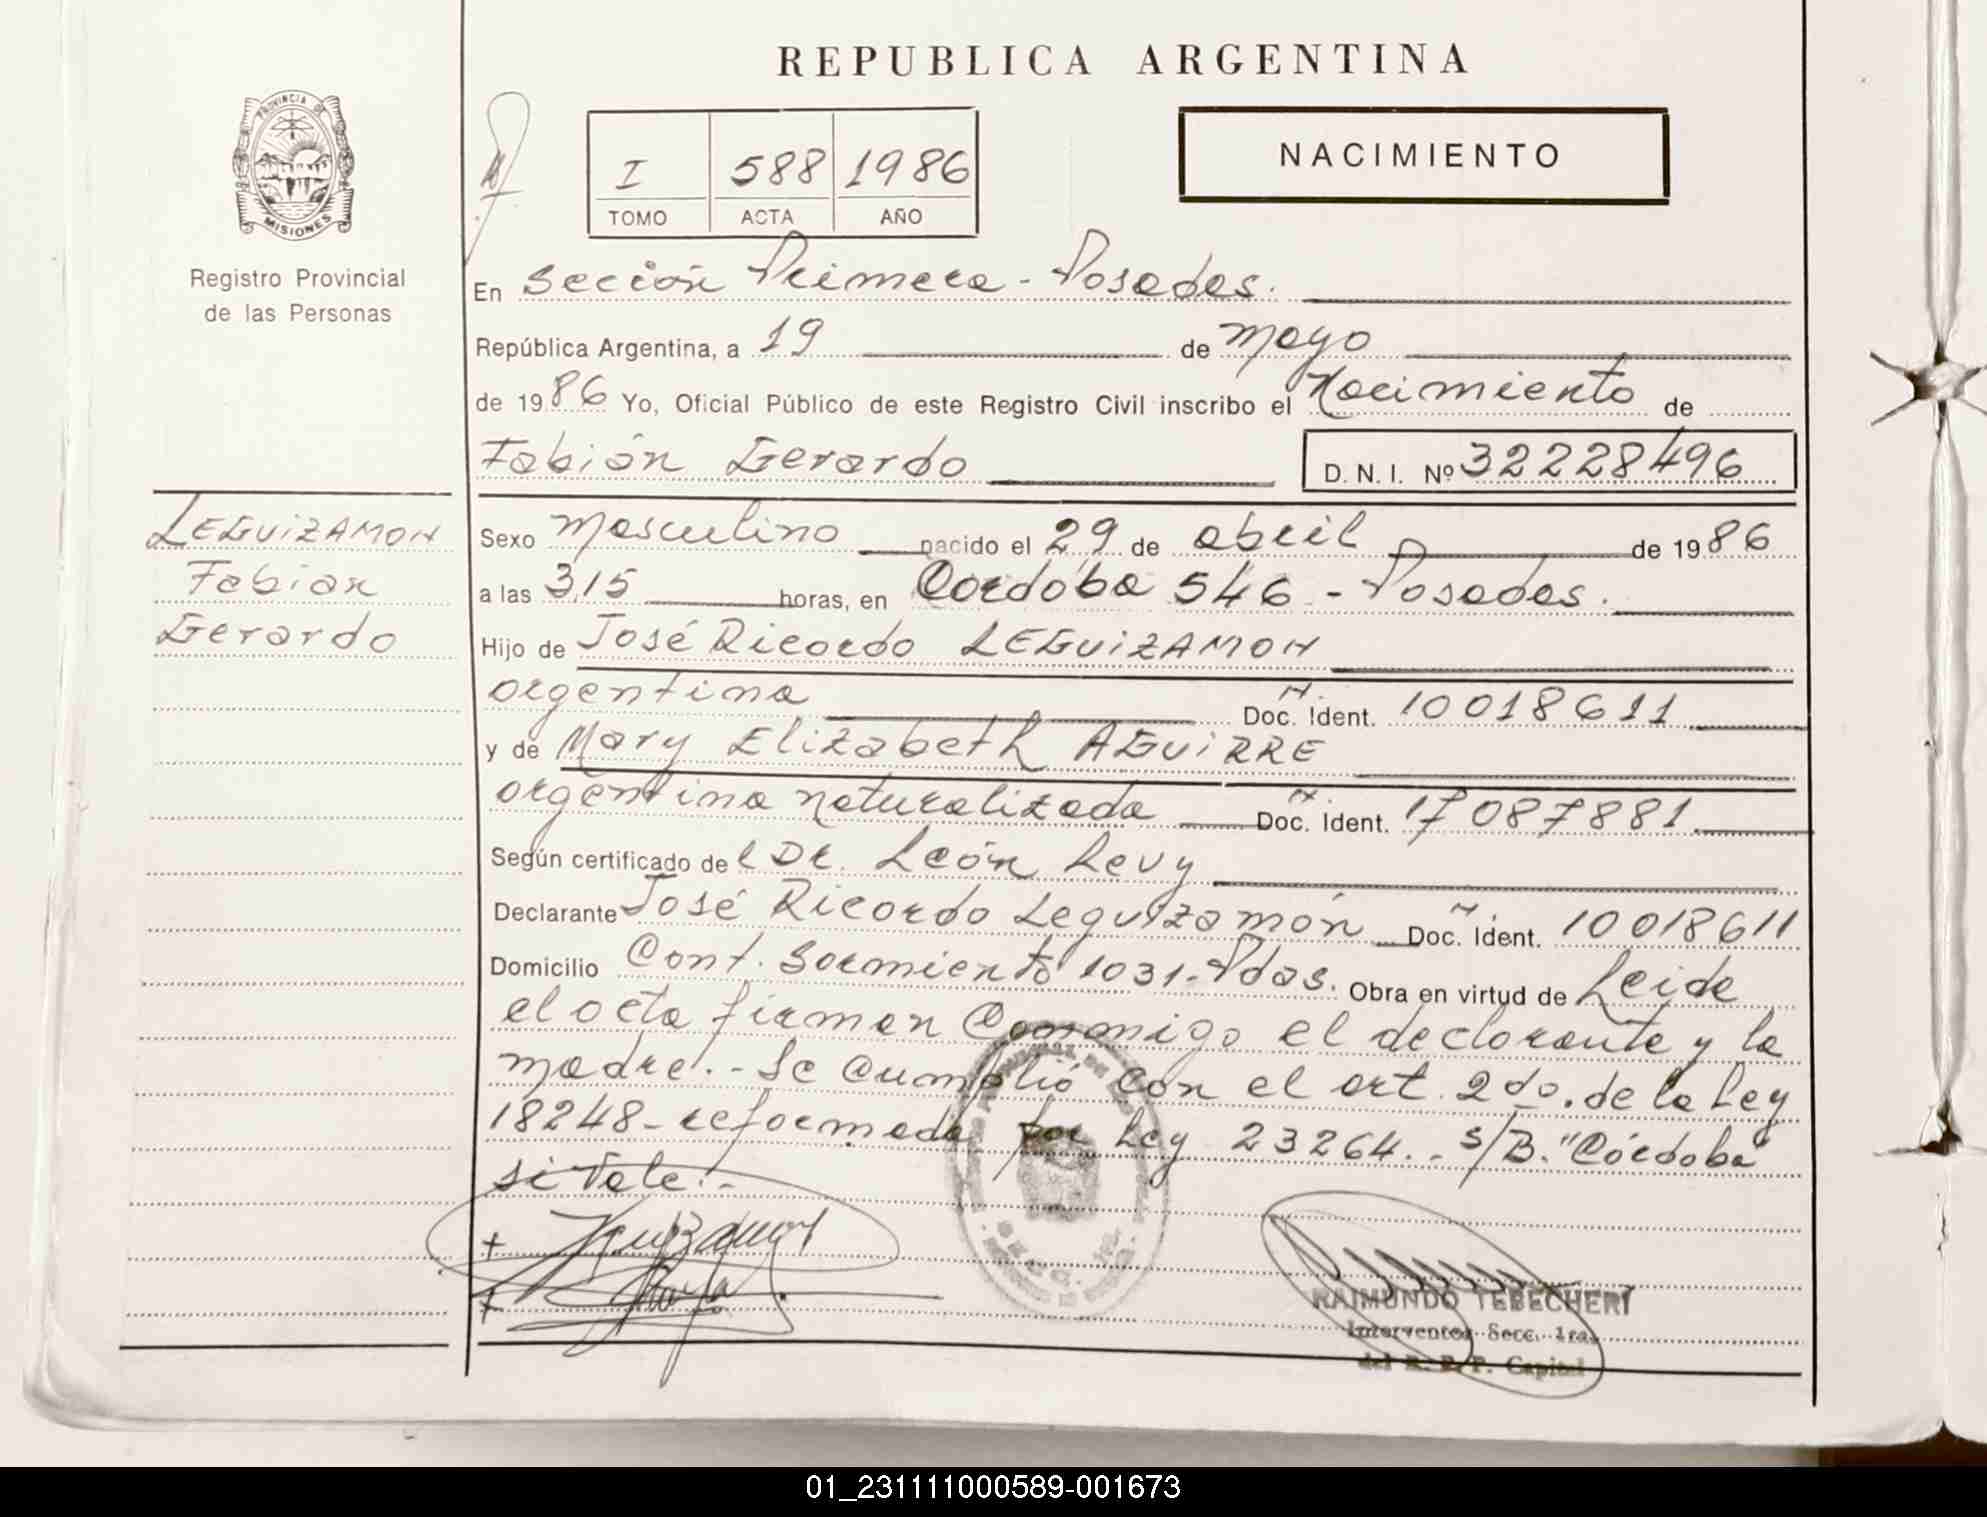 REPUBLICA ARGENTINA
PROVINCIA DE
MISIONES
Registro Provincial
de las Personas
I 588 1986
TOMO ACTA AÑO
NACIMIENTO
En Sección Primera - Posadas.
República Argentina, a 19 de mayo
de 1986 Yo, Oficial Público de este Registro Civil inscribo el Nacimiento de
Fabián Gerardo D. N. I. Nº 32228496
LEGUiZAMON
Fabian
Gerardo
Sexo masculino nacido el 29 de abril de 1986
a las 3,15 horas, en Córdoba 546 - Posadas.
Hijo de José Ricardo LEGUiZAMON
argentina Doc. Ident. 10018611
y de Mary Elizabeth AGUiRRE
argentina naturalizada Doc. Ident. 17087881
Según certificado del Dr. León Levy
Declarante José Ricardo Leguizamón Doc. Ident. 10018611
Domicilio Cont. Sarmiento 1031-Pdas. Obra en virtud de Leída
el acta firman Conmigo el declarante y la
madre.- Se Cumplió con el art. 2do. de la Ley
18248- reformada por Ley 23264.- s/B. "Córdoba"
si Vale.-
RAIMUNDO TEBECHERI
Interventor Secc. 1ra.
del R. P. P. Capital
01_231111000589-001673